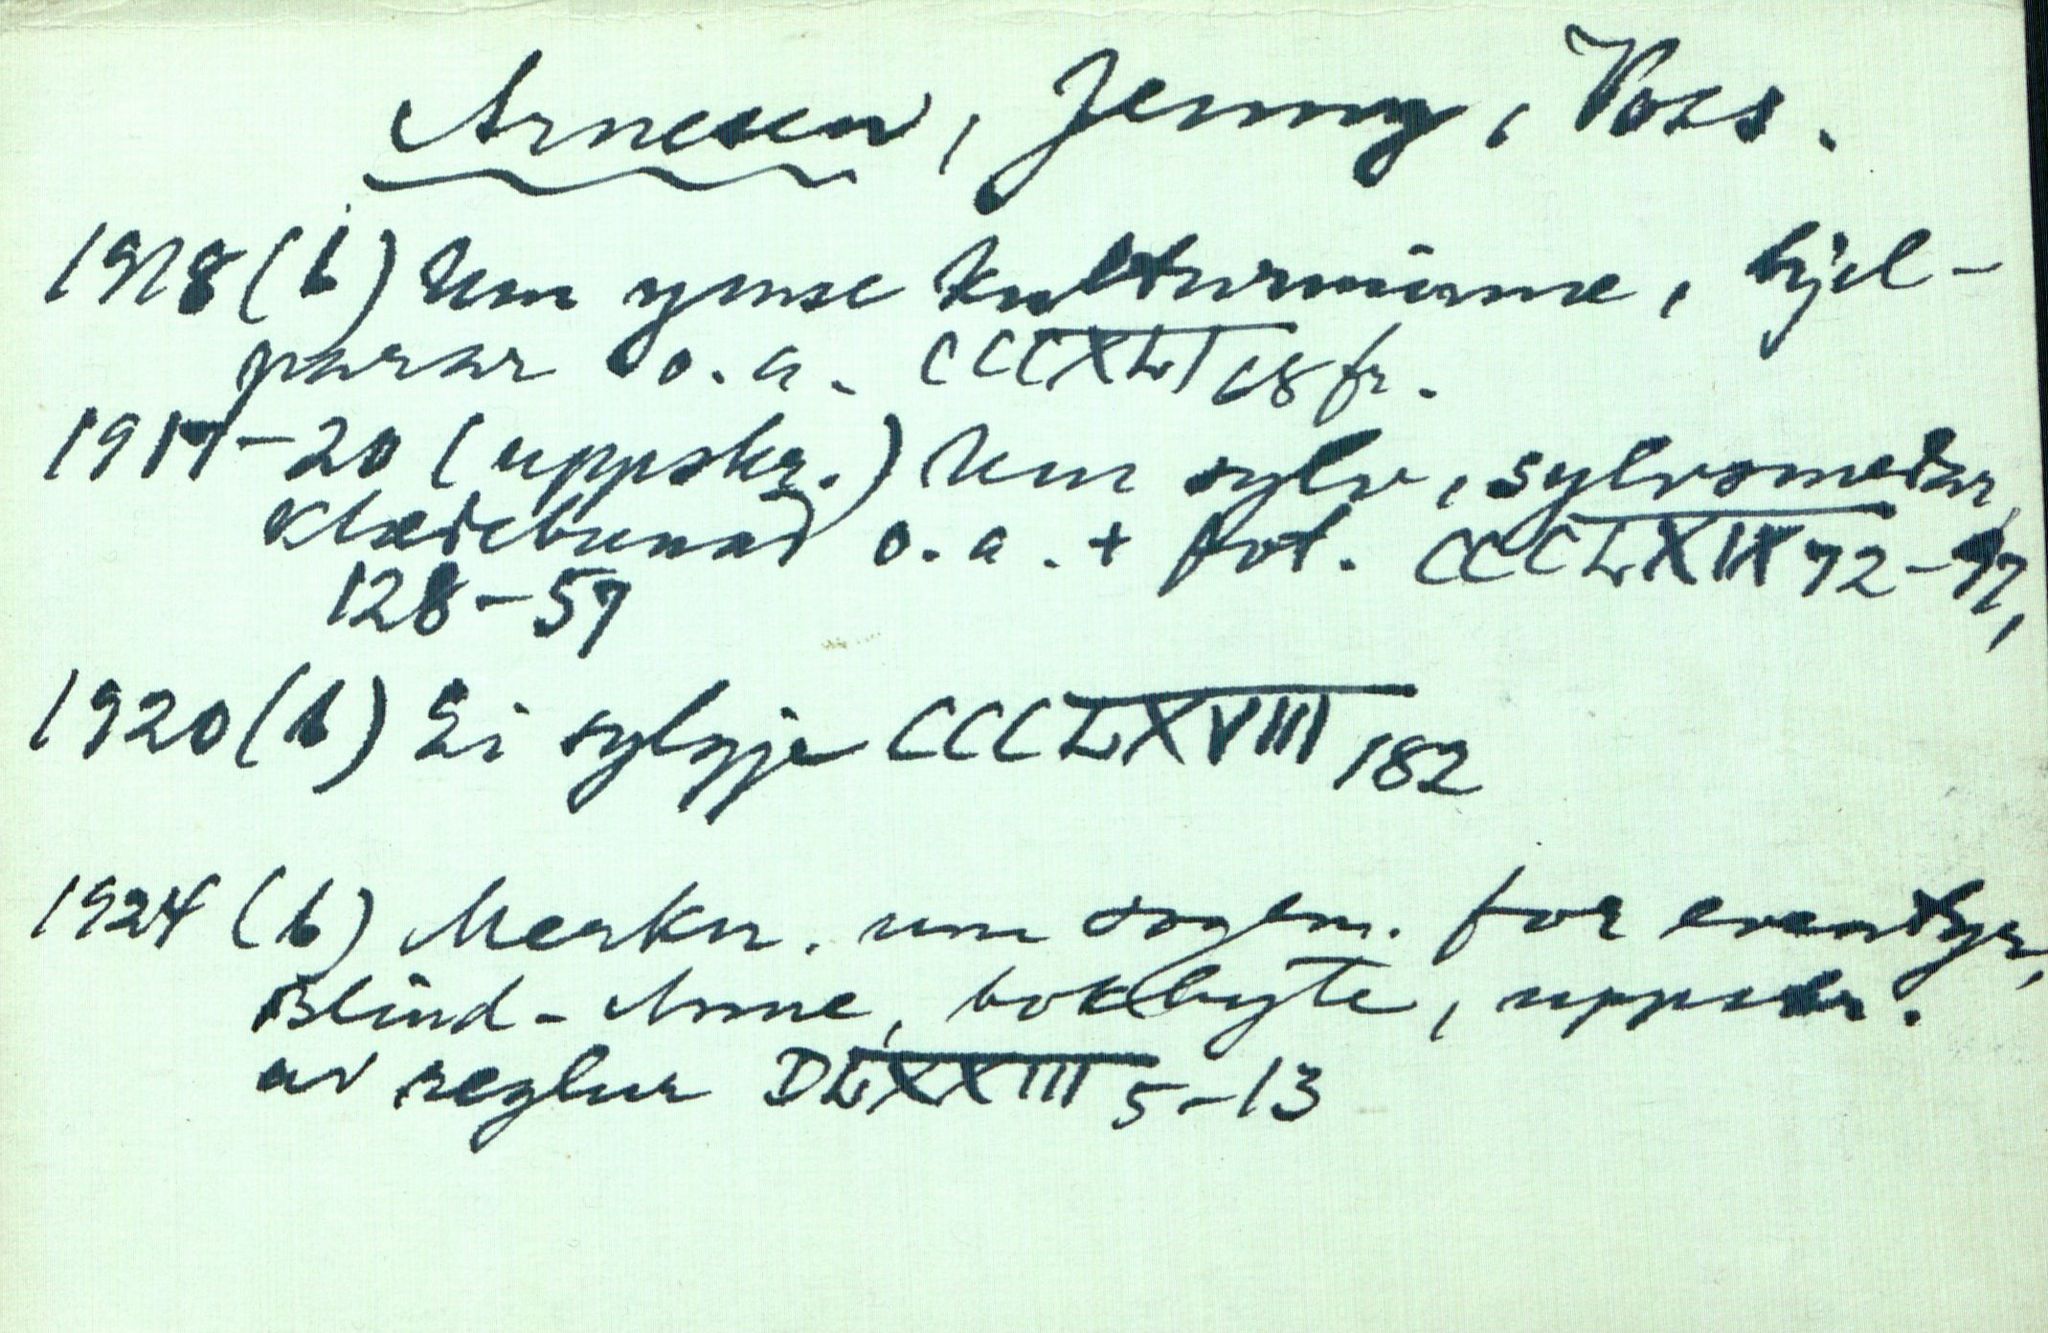 Arnesen, Jenny, Voss.
1918 (b) Um ymse kulturminne, hjel-
parar o.a. CCCXLI 68 fr.
1917-20 (uppskr.) Um sylv, sylvsmedar,
klædebunad o.a. + fot. CCCLXIX 72-97,
128-57
1920 (b) Ei sylgje CCCLXVIII 182
1924 (b) Merkn. um sogem. for eventyr,
Blind-Anne, bokbyte, uppskr.
av reglur DLXXIII 5-13